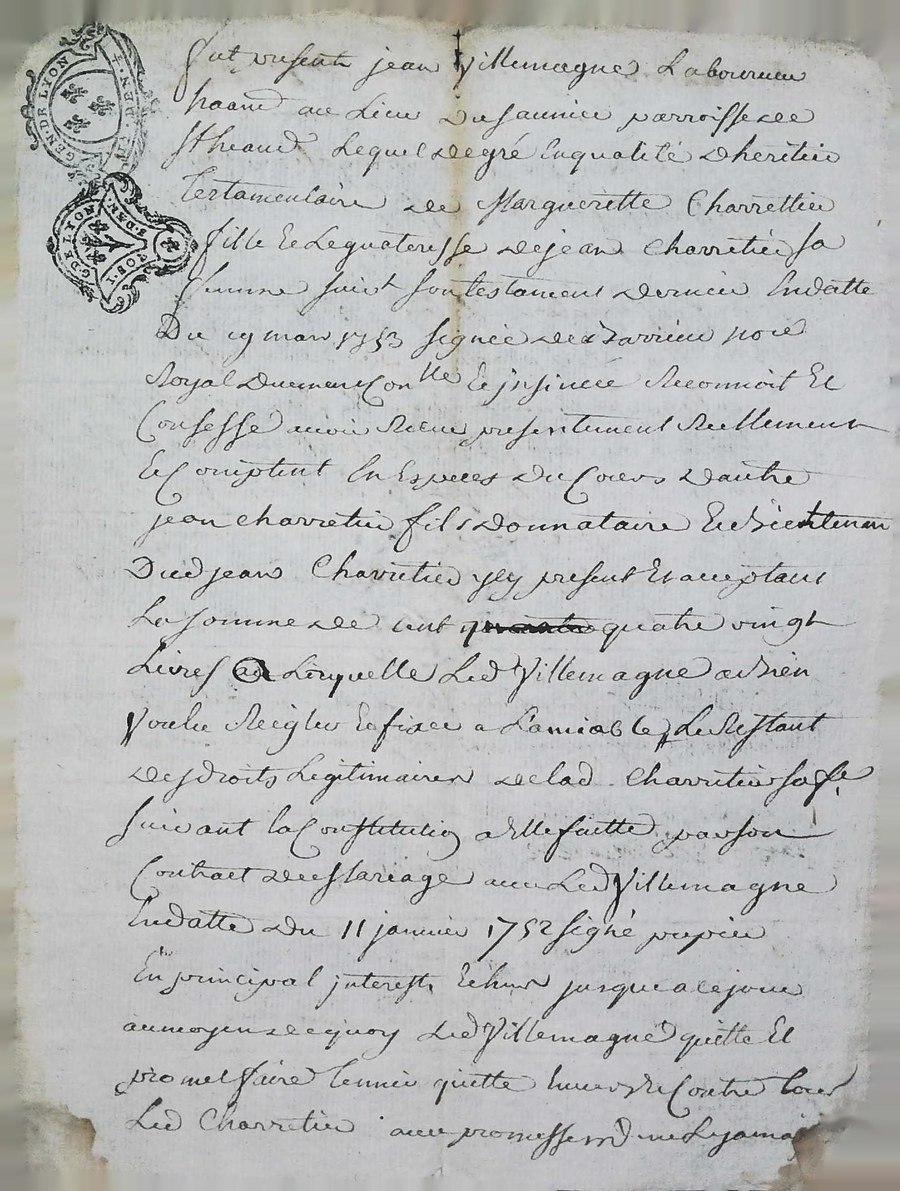 GEN DE LYON
G DE LYON
fut present jean Villemagne Laboureur
au Lieu Dusaunier parroisse de
St heand Lequel de gré Enqualité D heritier
Testamentaire de Margueritte Charrettier
fille Et Legataresse de jean Charretier sa
femme suivt son testament dernier Endatte
Du 19 mars 1753 signée noe
Royal Duement Con lle Et jnsinuée Reconnoit Et
Confesse avoir Receu presentement Reellement
Et Comptent En Especes Du Cours D autre
jean charretier fils donnataire Et Bientenan
Dud jean Charretier jcy present Et acceptant
La somme de cent quatre vingt
Livres a Laquelle Led Villemagne a Bien
Voulu Reigler Et fixer a L'amiable Le Restant
des droits Legitimaires de lad Charretier sa fe
suivant la Constitution a Elle faitte par son
Contract de Mariage avec Led Villemagne
Endatte du 11 janvier 1752 signé
En principal jnterest Echeus jusque a ce jour
au moyen de quoy Led Villemagne quitte Et
promet faire tenir quitte Envers Et Contre tous
Led Charretier avec promesse ne Luy jamai